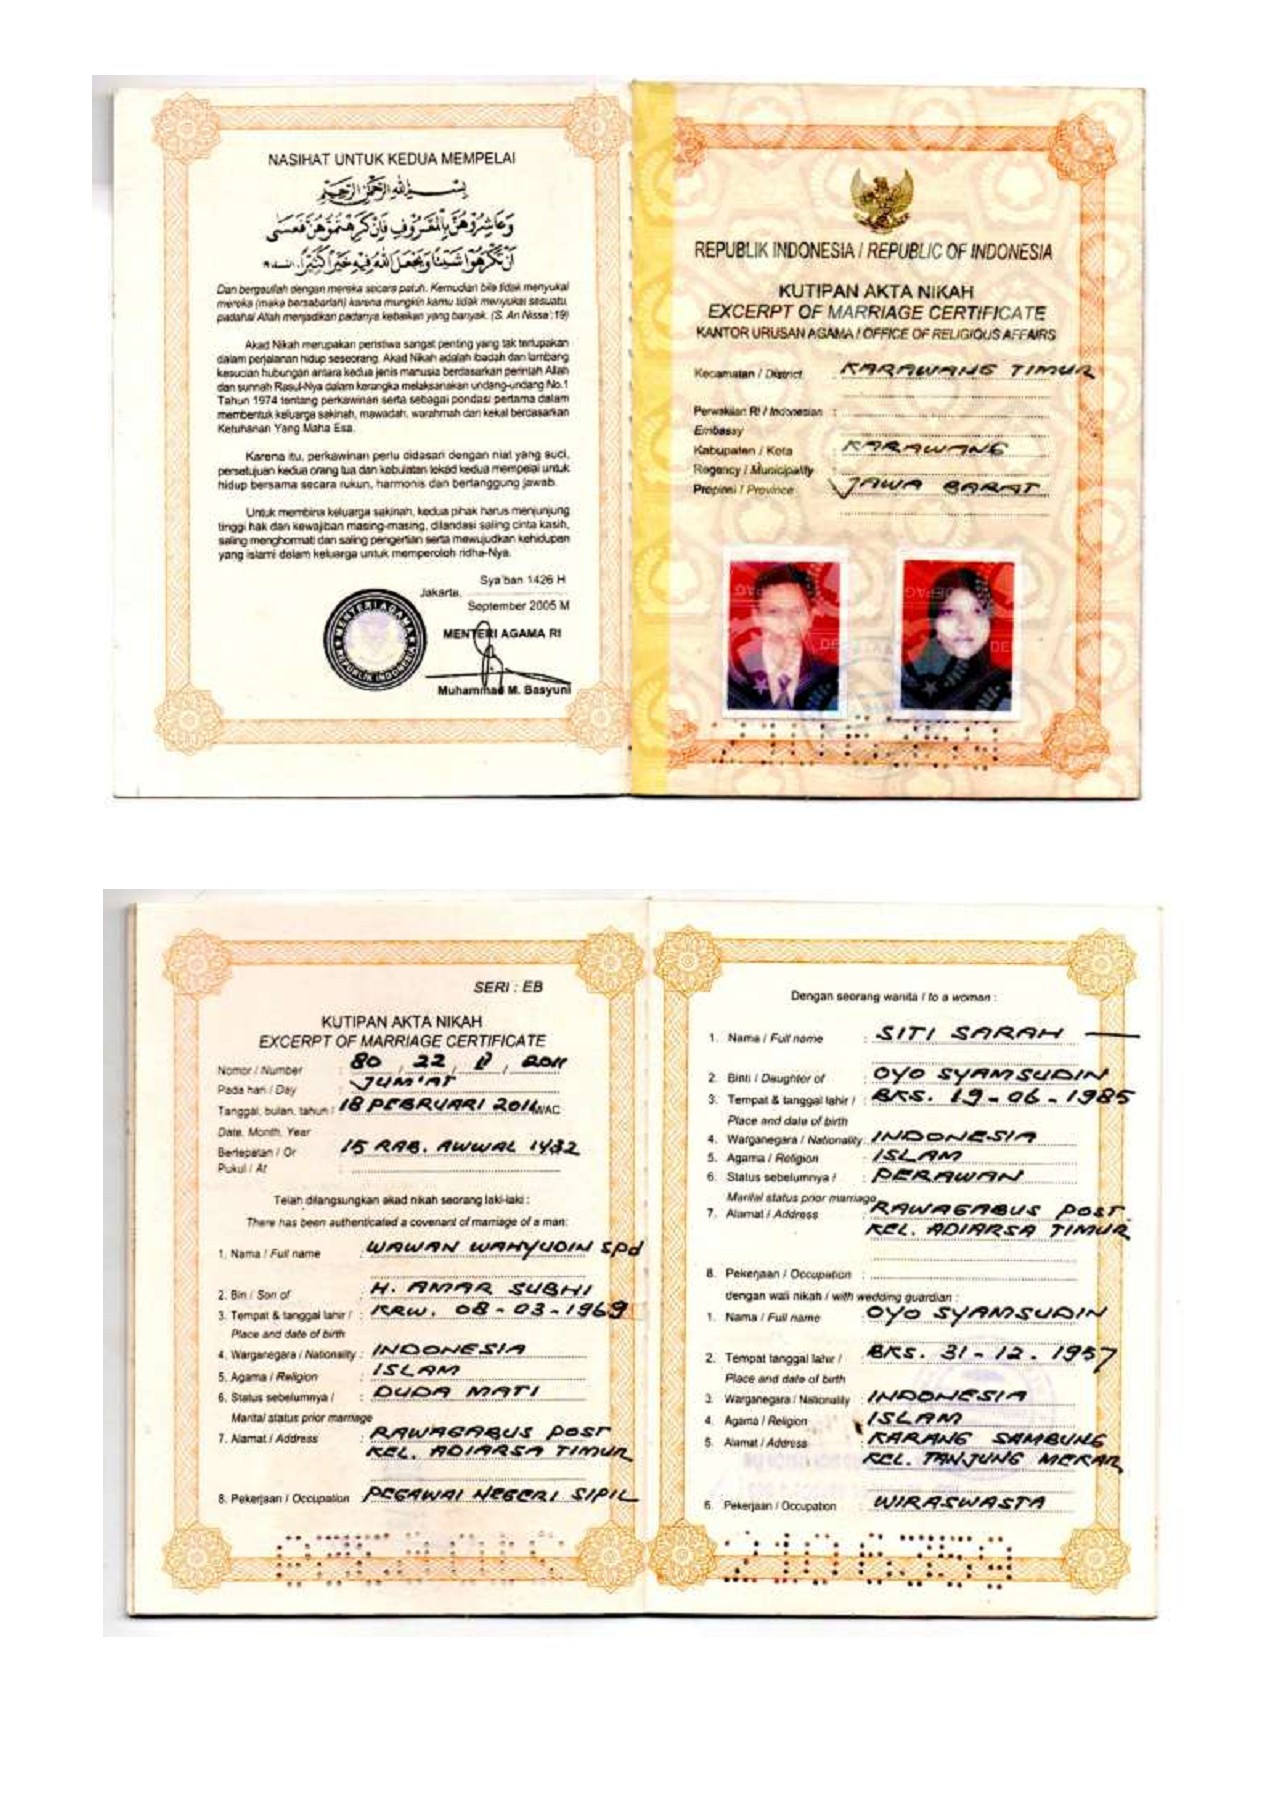 NASIHAT UNTUK KEDUA MEMPELAI
بِسْمِ اللهِ الرَّحْمٰنِ الرَّحِيْمِ
وَعَاشِرُوْهُنَّ بِالْمَعْرُوْفِ فَاِنْ كَرِهْتُمُوْهُنَّ فَعَسٰى
اَنْ تَكْرَهُوْا شَيْئًا وَيَجْعَلَ اللهُ فِيْهِ خَيْرًا كَثِيْرًا. النساء ١٩
Dan bergaullah dengan mereka secara patuh. Kemudian bila tidak menyukai
mereka (maka bersabarlah) karena mungkin kamu tidak menyukai sesuatu,
padahal Allah menjadikan padanya kebaikan yang banyak. (S. An Nissa':19)
Akad Nikah merupakan peristiwa sangat penting yang tak terlupakan
dalam perjalanan hidup seseorang. Akad Nikah adalah ibadah dan lambang
kesucian hubungan antara kedua jenis manusia berdasarkan perintah Allah
dan sunnah Rasul-Nya dalam kerangka melaksanakan undang-undang No.1
Tahun 1974 tentang perkawinan serta sebagai pondasi pertama dalam
membentuk keluarga sakinah, mawadah, warahmah dan kekal berdasarkan
Ketuhanan Yang Maha Esa.
Karena itu, perkawinan perlu didasari dengan niat yang suci,
persetujuan kedua orang tua dan kebulatan tekad kedua mempelai untuk
hidup bersama secara rukun, harmonis dan bertanggung jawab.
Untuk membina keluarga sakinah, kedua pihak harus menjunjung
tinggi hak dan kewajiban masing-masing, dilandasi saling cinta kasih,
saling menghormati dan saling pengertian serta mewujudkan kehidupan
yang islami dalam keluarga untuk memperoleh ridha-Nya.
Sya'ban 1426 H
Jakarta,
September 2005 M
MENTERI AGAMA RI
MENTERI AGAMA
REPUBLIK INDONESIA
Muhammad M. Basyuni
REPUBLIK INDONESIA / REPUBLIC OF INDONESIA
KUTIPAN AKTA NIKAH
EXCERPT OF MARRIAGE CERTIFICATE
KANTOR URUSAN AGAMA / OFFICE OF RELIGIOUS AFFAIRS
Kecamatan / District : KARAWANG TIMUR
Perwakilan RI / Indonesian :
Embassy
Kabupaten / Kota : KARAWANG
Regency / Municipality
Propinsi / Province : JAWA BARAT
SERI : EB
KUTIPAN AKTA NIKAH
EXCERPT OF MARRIAGE CERTIFICATE
Nomor / Number : 80 / 22 / II / 2011
Pada hari / Day : JUM'AT
Tanggal, bulan, tahun : 18 PEBRUARI 2011 M/AC
Date, Month, Year
Bertepatan / Or : 15 RAB. AWWAL 1432
Pukul / At :
Telah dilangsungkan akad nikah seorang laki-laki :
There has been authenticated a covenant of marriage of a man:
1. Nama / Full name : WAWAN WAHYUDIN Spd
2. Bin / Son of : H. AMAR SUBHI
3. Tempat & tanggal lahir / : KRW. 08-03-1969
Place and date of birth
4. Warganegara / Nationality : INDONESIA
5. Agama / Religion : ISLAM
6. Status sebelumnya / : DUDA MATI
Marital status prior marriage
7. Alamat / Address : RAWAGABUS POST
KEL. ADIARSA TIMUR
8. Pekerjaan / Occupation : PEGAWAI NEGERI SIPIL
Dengan seorang wanita / to a woman :
1. Nama / Full name : SITI SARAH
2. Binti / Daughter of : OYO SYAMSUDIN
3. Tempat & tanggal lahir / : BKS. 19-06-1985
Place and date of birth
4. Warganegara / Nationality : INDONESIA
5. Agama / Religion : ISLAM
6. Status sebelumnya / : PERAWAN
Marital status prior marriage
7. Alamat / Address : RAWAGABUS POST.
KEL. ADIARSA TIMUR
8. Pekerjaan / Occupation :
dengan wali nikah / with wedding guardian :
1. Nama / Full name : OYO SYAMSUDIN
2. Tempat tanggal lahir / : BKS. 31-12.1957
Place and date of birth
3. Warganegara / Nationality : INDONESIA
4. Agama / Religion : ISLAM
5. Alamat / Address : KARANG SAMBUNG
KEL. TANJUNG MEKAR
6. Pekerjaan / Occupation : WIRASWASTA